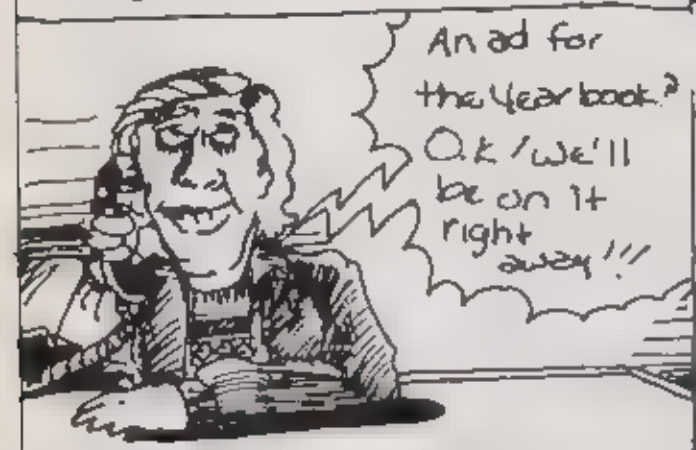 An ad for
the Yearbook?
O.K! We'll
be on it
right
away!!!